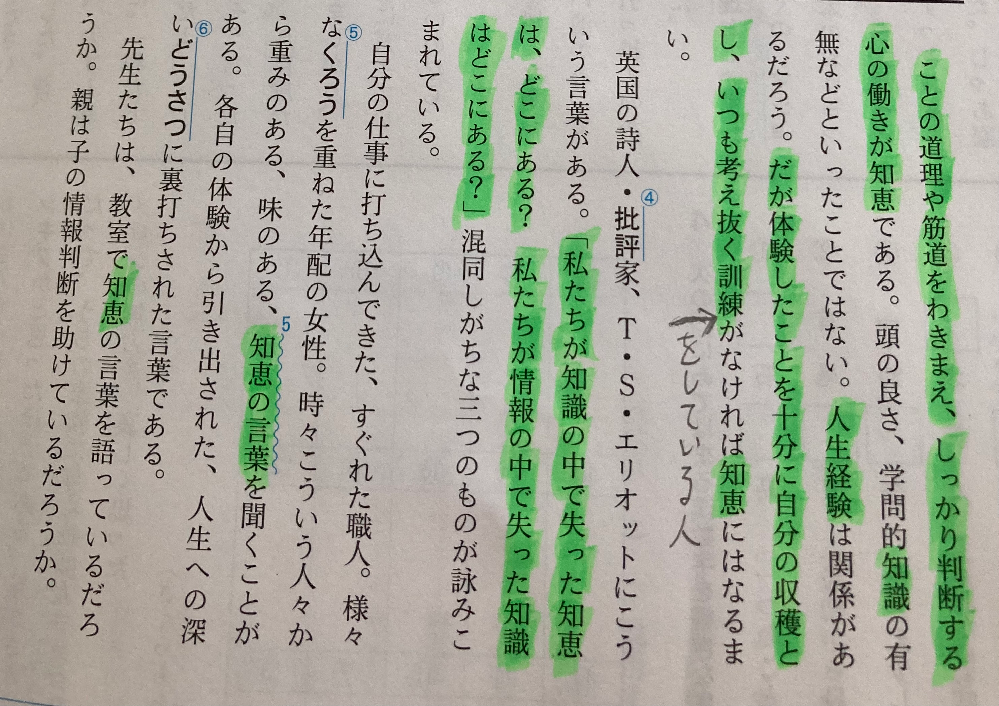 ことの道理や筋道をわきまえ、しっかり判断する
心の働きが知恵である。頭の良さ、学問的知識の有
無などといったことではない。人生経験は関係があ
るだろう。だが体験したことを十分に自分の収穫と
し、いつも考え抜く訓練がなければ知恵にはなるま
をしている人
い。
④
英国の詩人・批評家、T・S・エリオットにこう
いう言葉がある。「私たちが知識の中で失った知恵
は、どこにある？ 私たちが情報の中で失った知識
はどこにある？」混同しがちな三つのものが詠みこ
まれている。
自分の仕事に打ち込んできた、すぐれた職人。様々
⑤
なくろうを重ねた年配の女性。時々こういう人々か
5
ら重みのある、味のある、知恵の言葉を聞くことが
ある。各自の体験から引き出された、人生への深
⑥
いどうさつに裏打ちされた言葉である。
先生たちは、教室で知恵の言葉を語っているだろ
うか。親は子の情報判断を助けているだろうか。